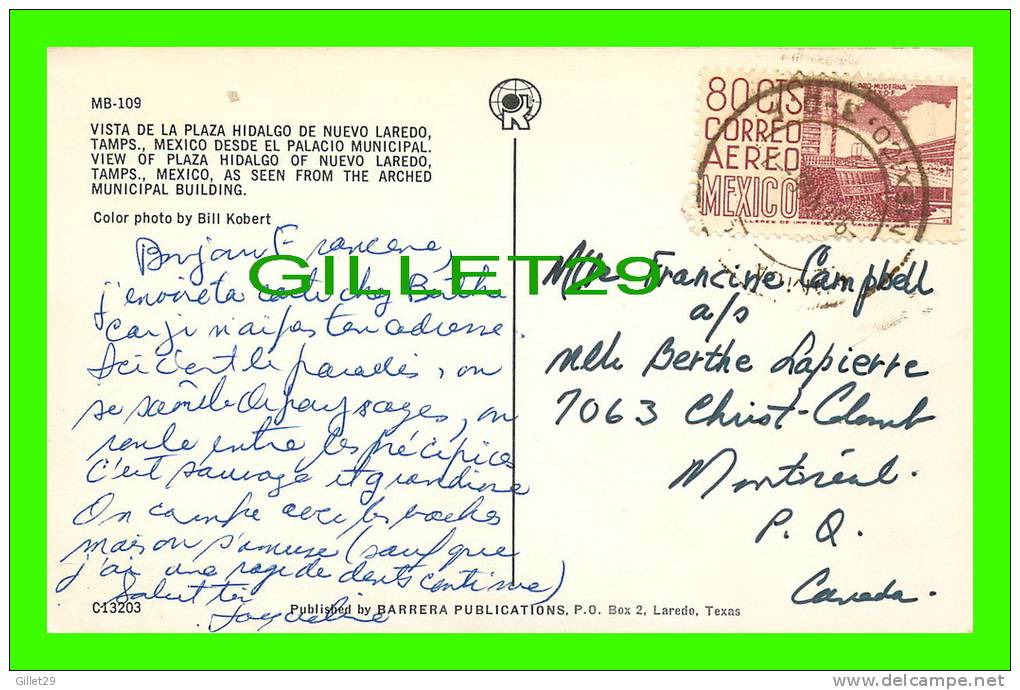 MB-109
VISTA DE LA PLAZA HIDALGO DE NUEVO LAREDO,
TAMPS., MEXICO DESDE EL PALACIO MUNICIPAL.
VIEW OF PLAZA HIDALGO OF NUEVO LAREDO,
TAMPS., MEXICO, AS SEEN FROM THE ARCHED
MUNICIPAL BUILDING.
Color photo by Bill Kobert
Bonjour Francine,
j'envoie ta carte chez Berthe
car je n'ai pas ton adresse.
Ici c'est le paradis, on
se saoûle de paysages, on
roule entre les précipices
c'est sauvage et grandiose
On campe avec les
mais on s'amuse (sauf que
j'ai une rage de dents continue)
Salut toi
Jacqueline
C13203
Published by BARRERA PUBLICATIONS, P.O. Box 2, Laredo, Texas
80 CTS
CORREO
AEREO
MEXICO
ARQ-MODERNA
MEX D-F
Mlle Francine Campbell
a/s
Mlle Berthe Lapierre
7063 Christ-Colomb
Montréal.
P. Q.
Canada.
GILLET29
Gillet29
delcampe.net